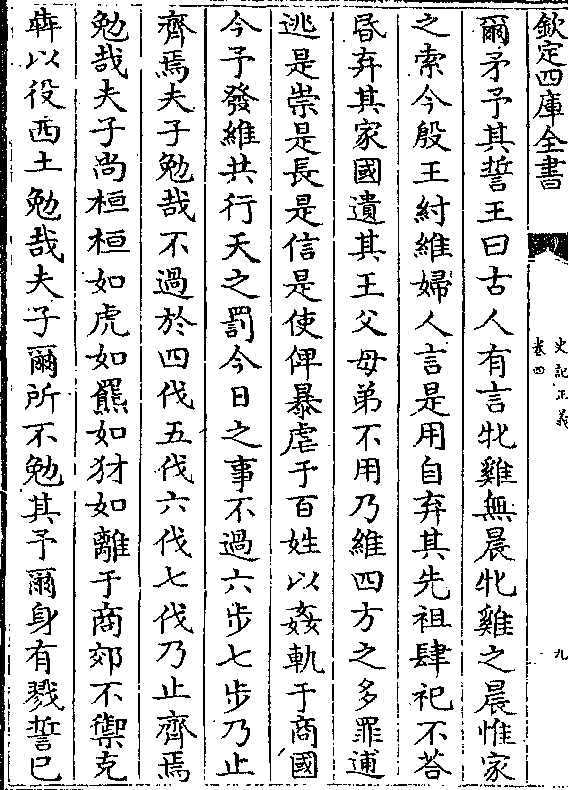 欽定四庫全書
史記正義
卷四
九
爾矛予其誓王曰古人有言牝雞無晨牝雞之晨惟家
之索今殷王紂維婦人言是用自弃其先祖肆祀不荅
昬弃其家國遺其王父母弟不用乃維四方之多罪逋
逃是崇是長是信是使俾暴虐于百姓以姦軌于商國
今予發維共行天之罰今日之事不過六步七步乃止
齊焉夫子勉哉不過於四伐五伐六伐七伐乃止齊焉
勉哉夫子尚桓桓如虎如羆如豺如離于商郊不禦克
犇以役西土勉哉夫子爾所不勉其予爾身有戮誓已